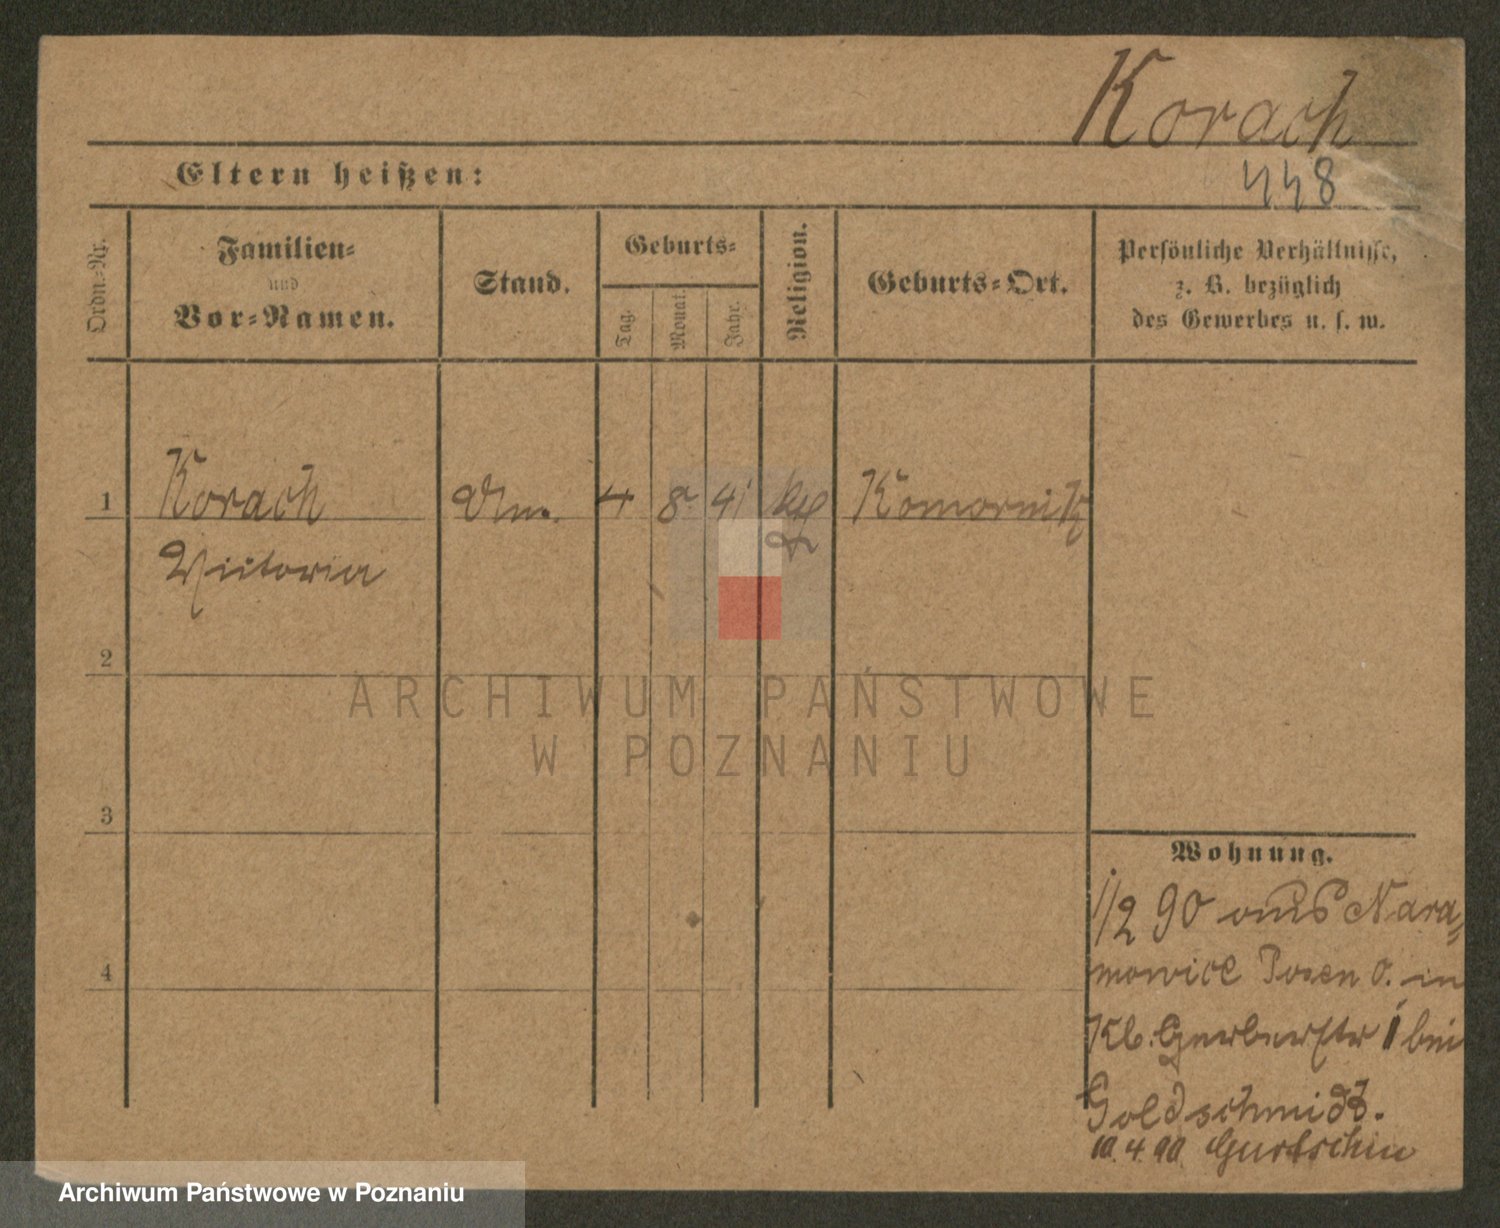 Korach
448
Eltern heißen:
Ordn.-Nr.
Familien-
und
Vor-Namen.
Stand.
Geburts-
Tag.
Monat.
Jahr.
Religion.
Geburts-Ort.
Persönliche Verhältnisse,
z. B. bezüglich
des Gewerbes u. s. w.
1 Korach 4 8 41 Komornik
Victoria
2
3
4
ARCHIWUM PAŃSTWOWE
W POZNANIU
Wohnung.
1/2 90 aus Nara=
mowice Posen O. in
Kl. Gerberstr 1 bei
Goldschmidt.
10.4.90 Gurtschin
Archiwum Państwowe w Poznaniu